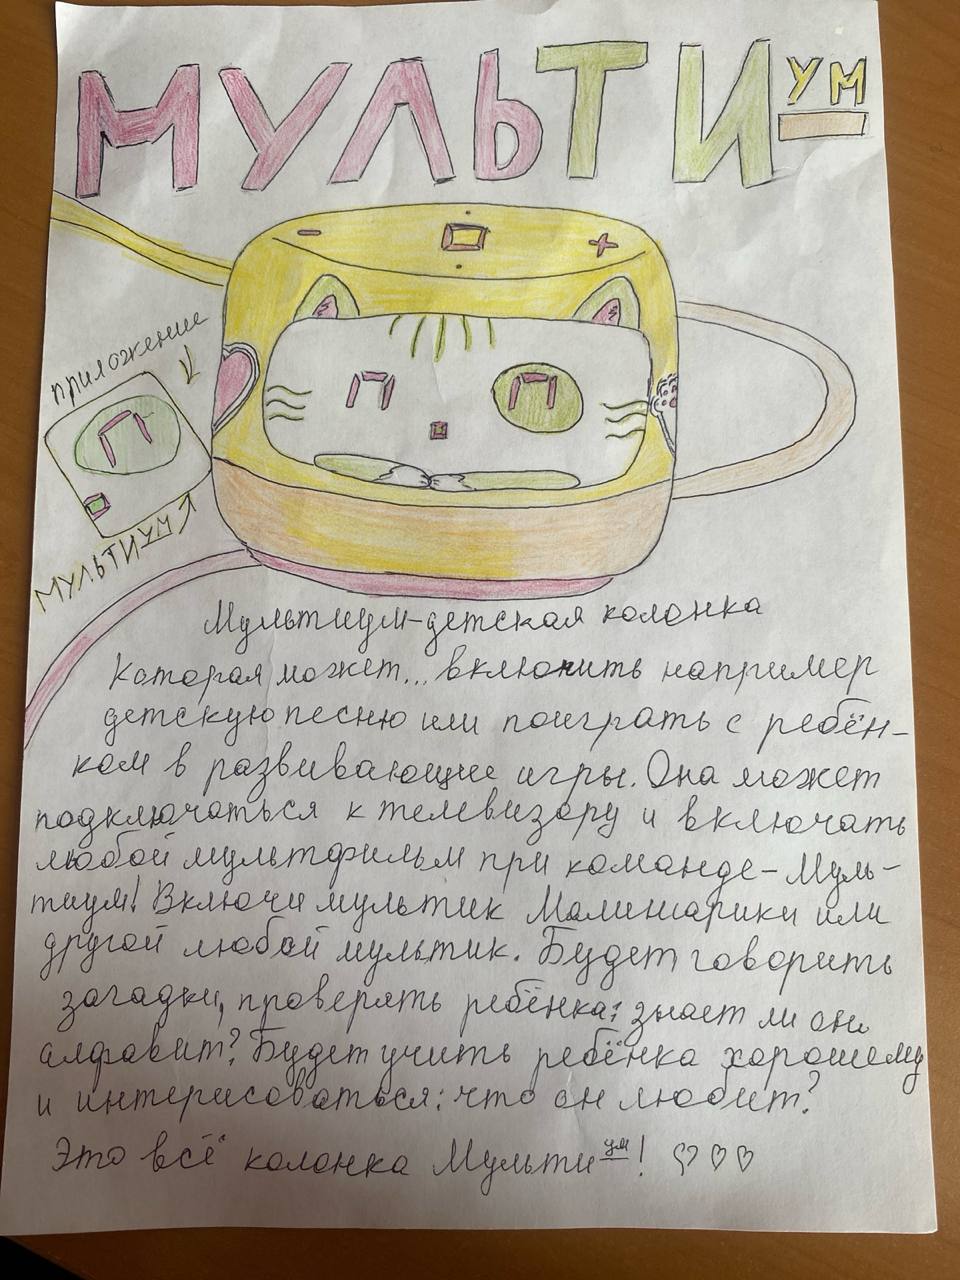 МУЛЬТИ УМ
приложение
МУЛЬТИУМ
Мультиум-детская колонка
Которая может... включить например
детскую песню или поиграть с ребён-
ком в развивающие игры. Она может
подключаться к телевизору и включать
любой мультфильм при команде - Муль-
тиум! Включи мультик Малишарики или
другой любой мультик. Будет говорить
загадки, проверять ребёнка: знает ли он
алфавит? Будет учить ребёнка хорошему
и интерисоваться: что он любит?
Это всё колонка Мультиум!